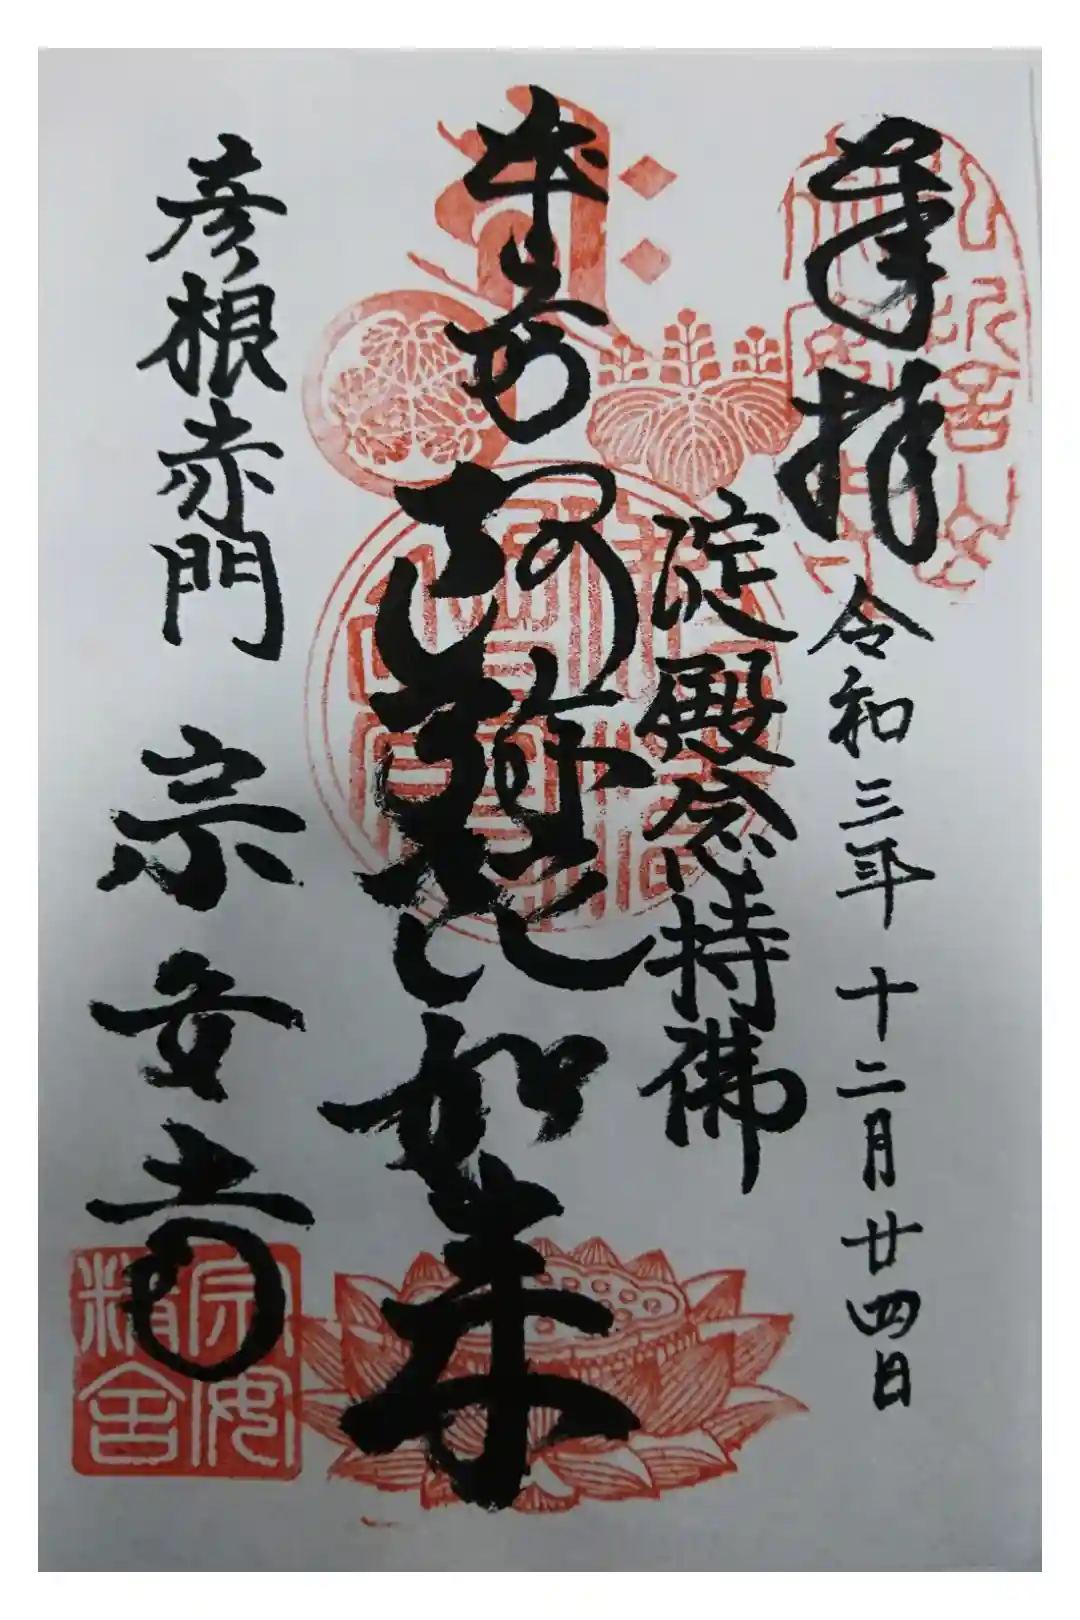 奉拝
令和三年十二月廿四日
淀殿念持佛
本尊
阿彌陀如来
彦根赤門
宗安寺
宗安
精舎